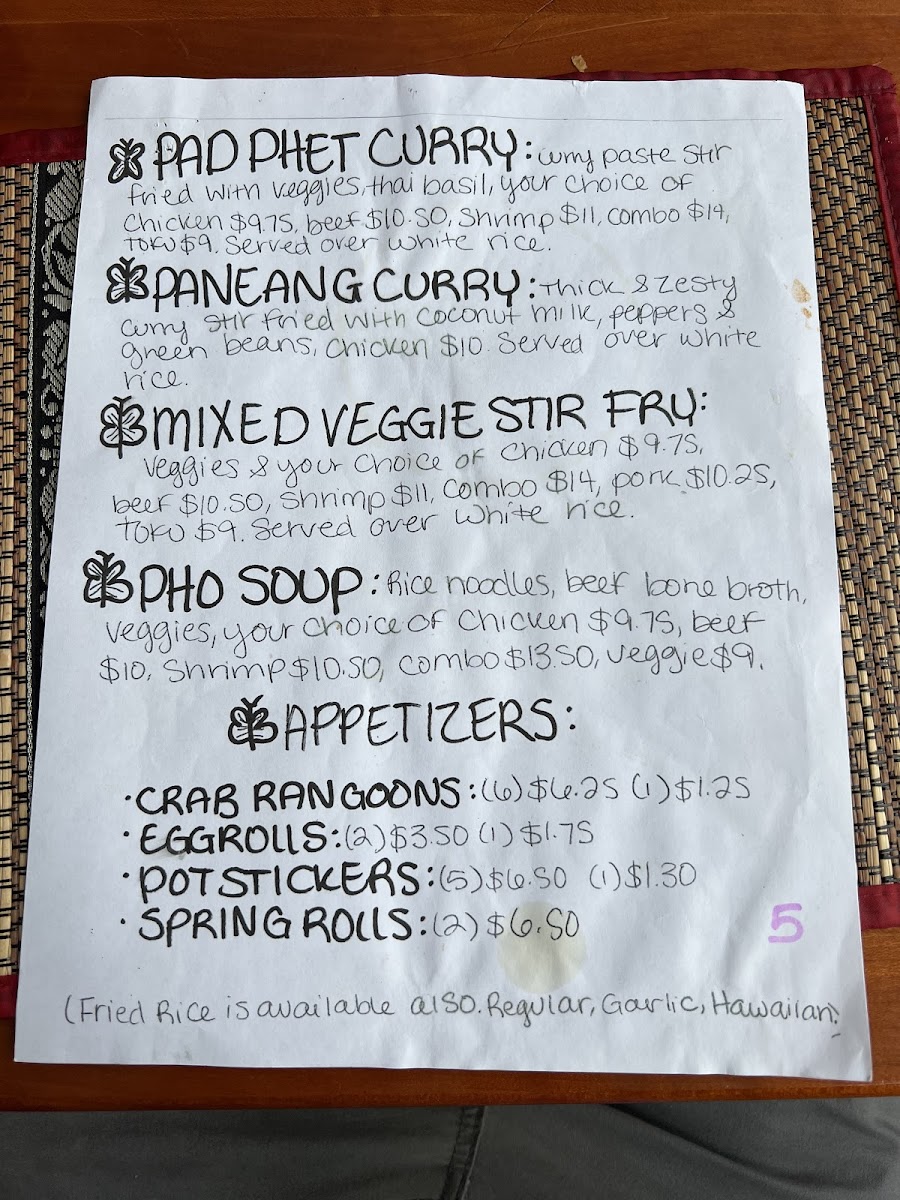 PAD PHET CURRY: curry paste stir
fried with veggies, thai basil, your choice of
Chicken $9.75, beef $10.50, Shrimp $11, combo $14,
TOFU $9. Served over white rice.
PANEANG CURRY: Thick & zesty
curry stir fried with coconut milk, peppers &
green beans, chicken $10. Served over white
rice.
MIXED VEGGIE STIR FRY:
Veggies & your choice of chicken $9.75,
beef $10.50, Shrimp $11, combo $14, pork $10.25,
TOFU $9. Served over white rice.
PHO SOUP: Rice noodles, beef bone broth,
veggies, your choice of chicken $9.75, beef
$10, Shrimp $10.50, combo $13.50, veggie $9.
APPETIZERS:
· CRAB RANGOONS: (6) $6.25 (1) $1.25
· EGGROLLS: (2) $3.50 (1) $1.75
· POTSTICKERS: (5) $6.50 (1) $1.30
· SPRING ROLLS: (2) $6.50
5
(Fried Rice is available also. Regular, Garlic, Hawaiian)